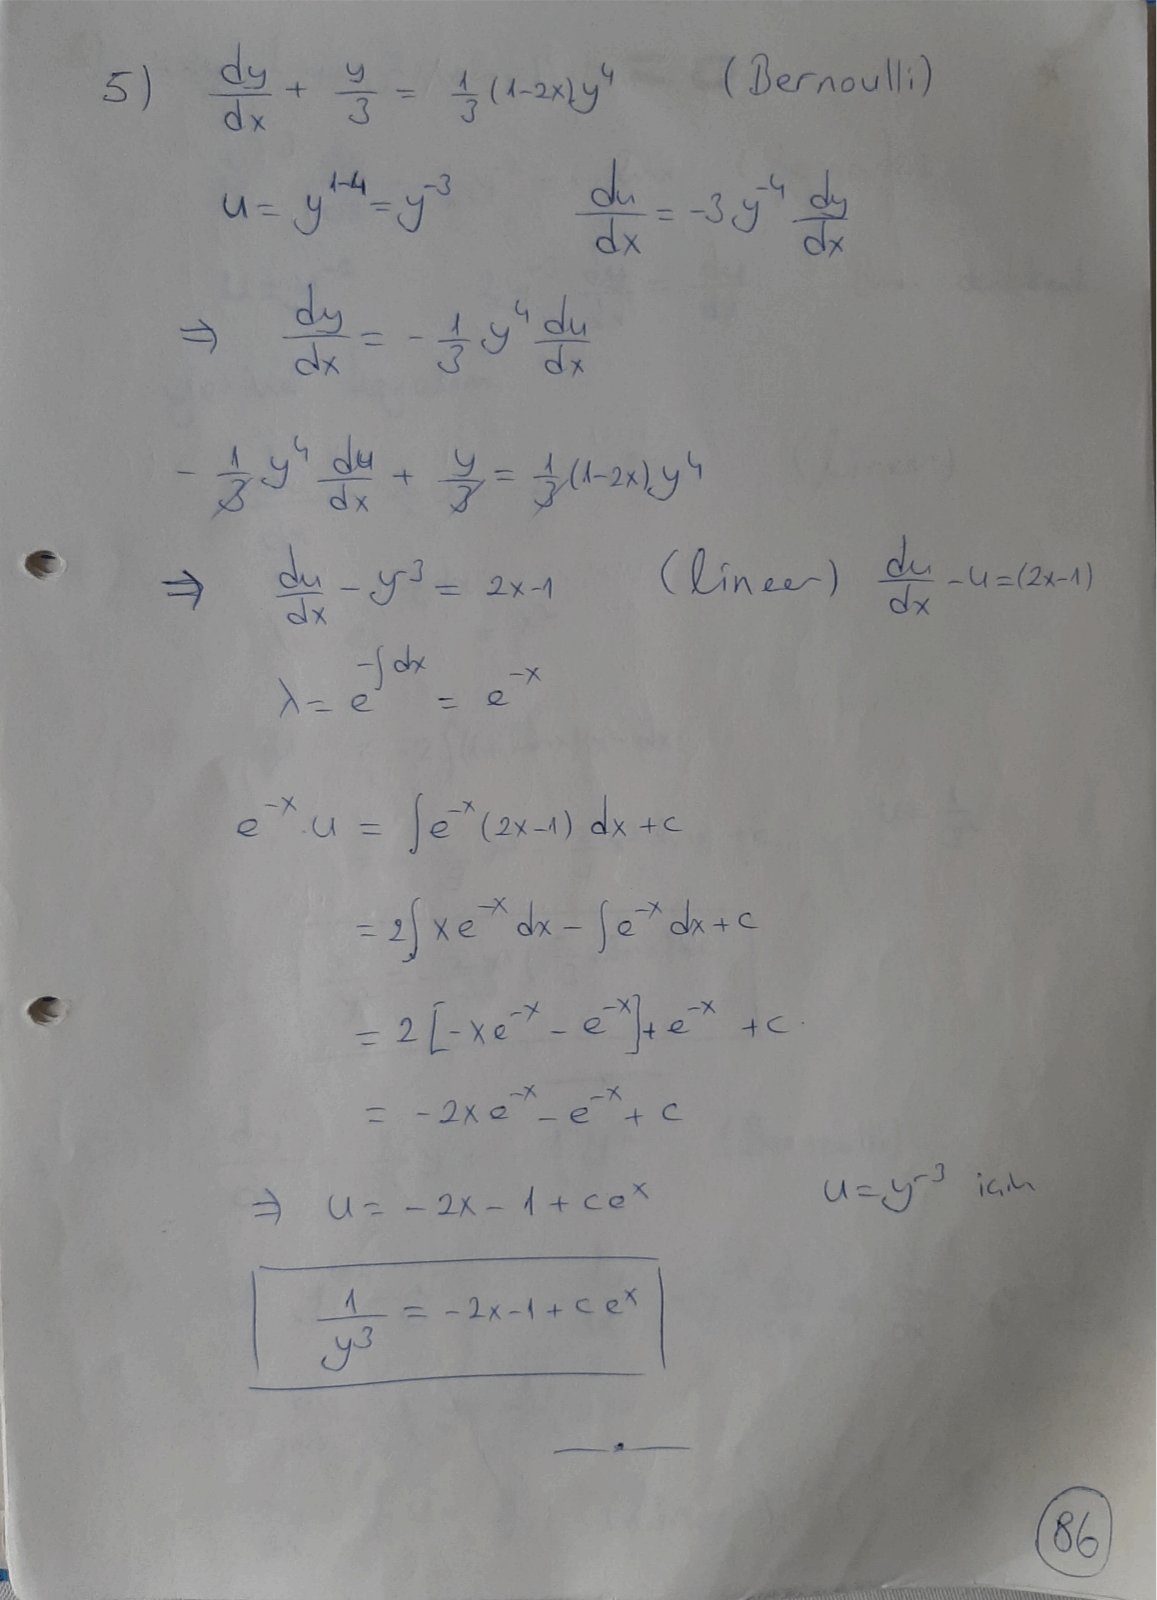 5) dy/dx + y/3 = 1/3 (1-2x) y⁴ (Bernoulli)
u = y¹⁻⁴ = y⁻³ du/dx = -3 y⁻⁴ dy/dx
⇒ dy/dx = - 1/3 y⁴ du/dx
- 1/3 y⁴ du/dx + y/3 = 1/3 (1-2x) y⁴
⇒ du/dx - y⁻³ = 2x-1 (lineer) du/dx - u = (2x-1)
λ = e^(-∫dx) = e^(-x)
e^(-x) . u = ∫ e^(-x) (2x-1) dx + c
= 2∫ x e^(-x) dx - ∫ e^(-x) dx + c
= 2 [-x e^(-x) - e^(-x)] + e^(-x) + c.
= -2x e^(-x) - e^(-x) + c
⇒ u = -2x - 1 + c e^x u = y⁻³ için
1/y³ = -2x - 1 + c e^x
86